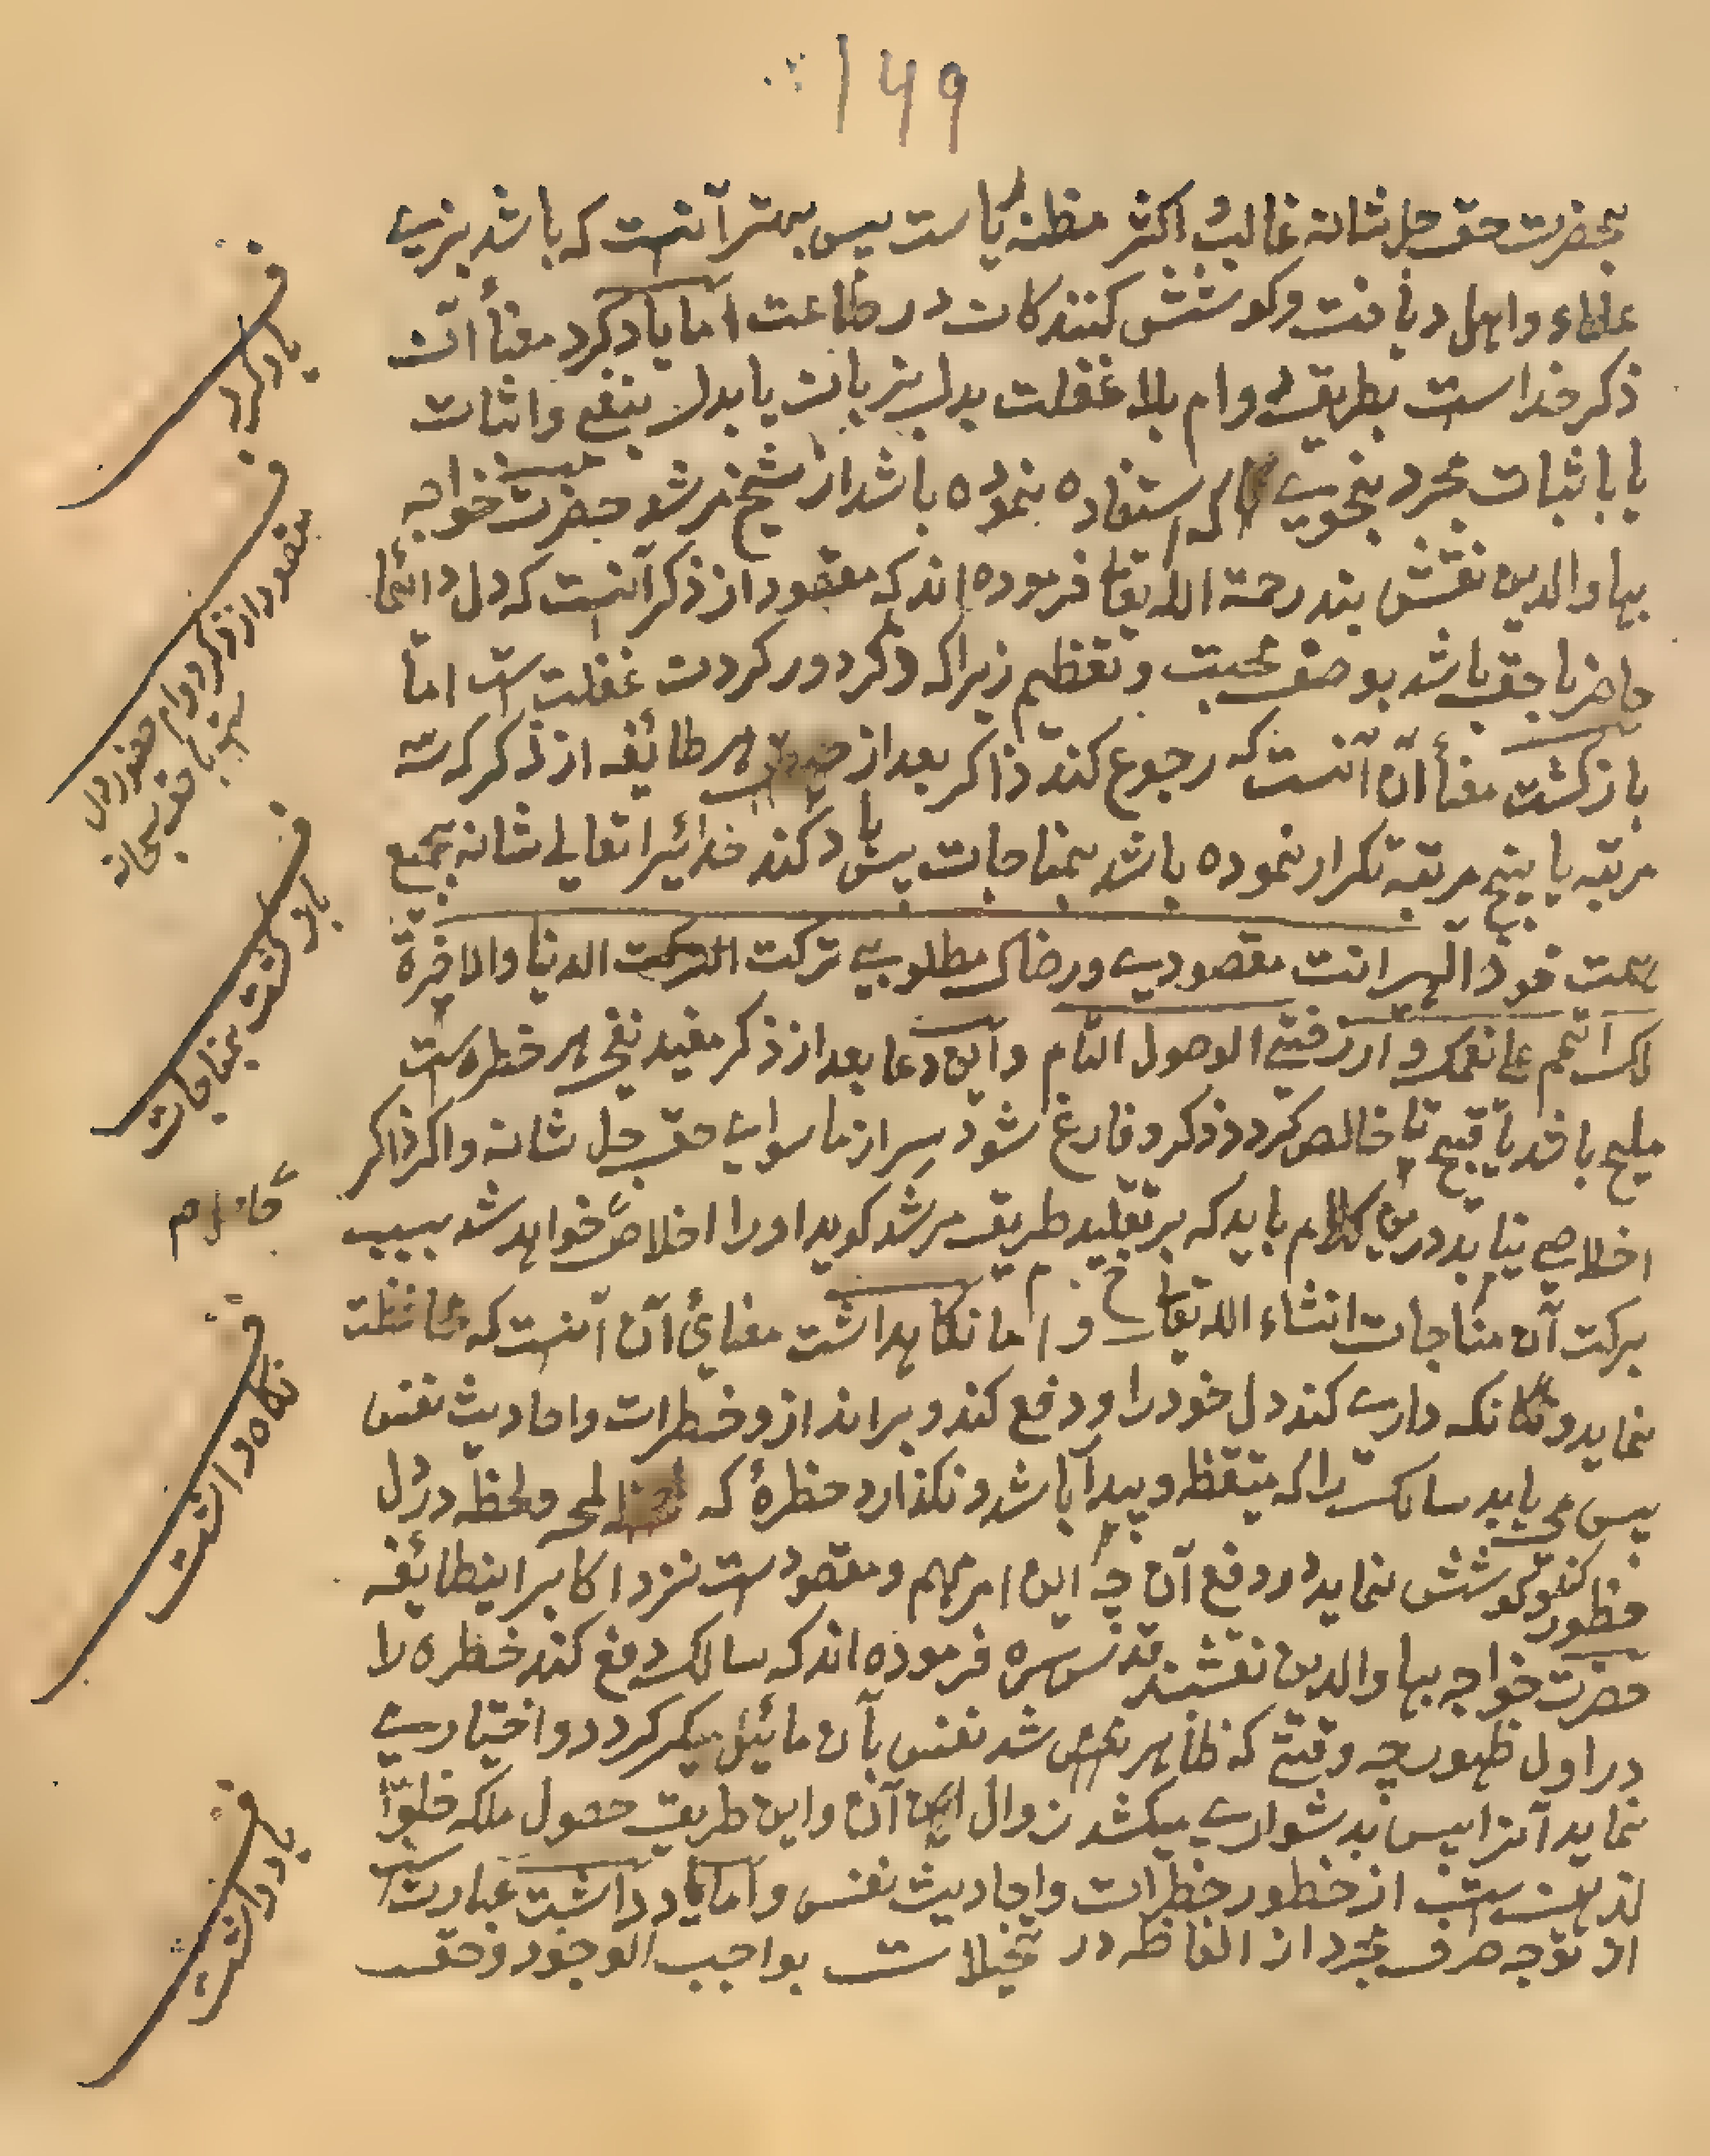 ۱۴۹
بحضرت حق جل شانه غالب اکثر مظنه ریا ست پس بهتر آنست که باشد بزی
علماء و اهل دیانت و کوشش کنندکان در طاعت اما یادکرد معنأ آن
ذکر خداست بطریق دوام بلا غفلت بدل بزبان یا بدل بنفی و اثبات
یا باثبات مجرد بنحوی که استفاده نموده باشد از شیخ مرشد حضرت خواجه
بهاوالدین نقش بند رحمة الله تعا فرموده اند که مقصود از ذکر آنست که دل دائما
حاضر باحق باشد بوصف محبت و تعظیم زیراکه ذکر دور کردن غفلت ست اما
بازکشت معنأ آن آنست که رجوع کند ذاکر بعد از هر طائفه از ذکر که سه
مرتبه یا پنج مرتبه تکرار نموده باشد بمناجات پس یاد کند خدائیرا تعالی شانه بجمیع
همت خود الهی انت مقصودی و رضاک مطلوبی ترکت الدنیا والاخرة
لک اتمم علی نعمک وارزقنی الوصول التام و این دعا بعد از ذکر مفید نفی هر خطره ست
ملیح باشد یا قبیح تا خالص کردد ذکر و فارغ شود سر از ماسوای حق جل شانه و اکر ذاکر
اخلاصی نیابد درین کلام باید که بر تقلید طریق مرشد کوید او را اخلاص خواهد شد بسبب
برکت آن مناجات انشاء الله تعا و اما نکاهداشت معنائ آن آنست که محافظت
نماید و نکاه داری کند دل خود را و دفع کند و براندازد خطرات و احادیث نفس
پس می باید سالک را که متیقظ و بیدار باشد و نکذارد خطرۀ که لمحه و لحظه در دل
خطور کند و کوشش نماید در دفع آن چه این امر مهم و مقصود ست نزد اکابر اینطائفه
حضرت خواجه بهاوالدین نقشبند قدس سره فرموده اند که سالک دفع کند خطره را
در اول ظهور چه وقتی که ظاهر شد نفس بآن مائیل میکردد و اختیاری
نماید آنرا پس بدشواری میکشد زوال آن و این طریق حصول ملکه خلو
ذهن ست از خطور خطرات و احادیث نفس و اما یادداشت عبارت ست
از توجه صرف مجرد از الفاظ و تخیلات بواجب الوجود و حق
ف
یادکرد
ف
مقصود از ذکر دوام حضور دل
ست با حق سبحانه
ف
بازکشت بمناجات
ف
نکاه داشت
ف
یادداشت